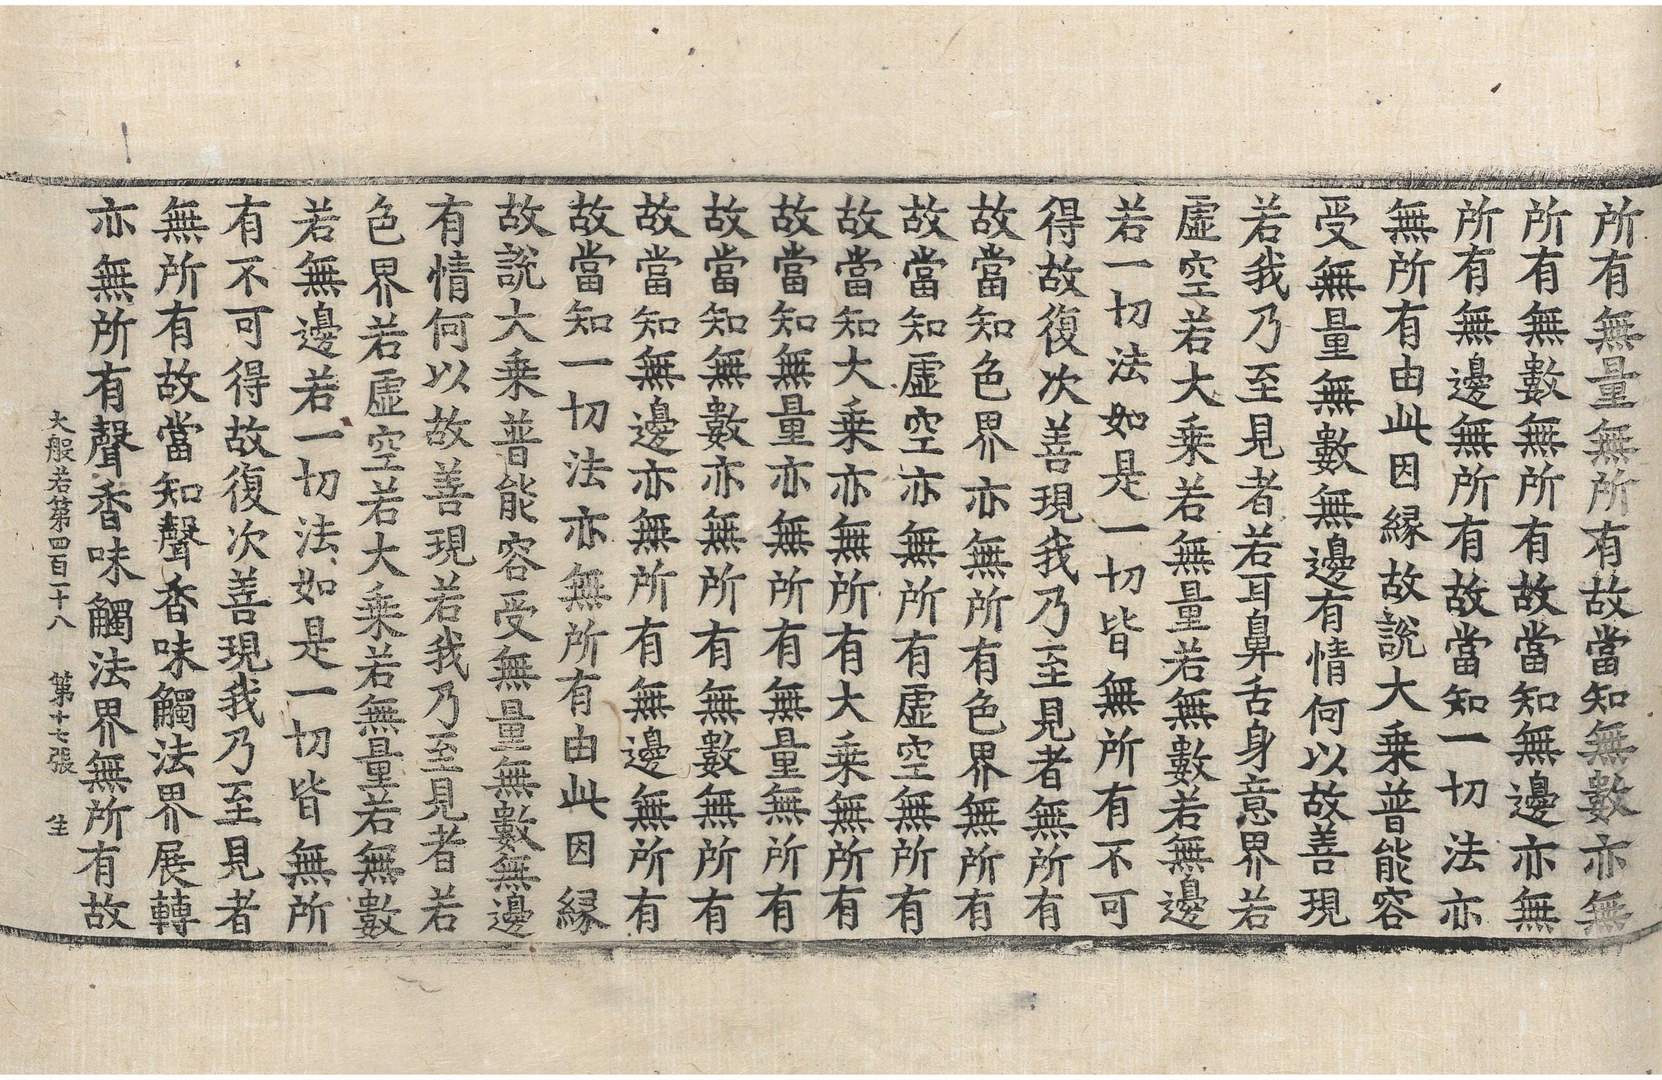 所有無量無所有故當知無數亦無
所有無數無所有故當知無邊亦無
所有無邊無所有故當知一切法亦
無所有由此因緣故說大乘普能容
受無量無數無邊有情何以故善現
若我乃至見者若耳鼻舌身意界若
虛空若大乘若無量若無數若無邊
若一切法如是一切皆無所有不可
得故復次善現我乃至見者無所有
故當知色界亦無所有色界無所有
故當知虛空亦無所有虛空無所有
故當知大乘亦無所有大乘無所有
故當知無量亦無所有無量無所有
故當知無數亦無所有無數無所有
故當知無邊亦無所有無邊無所有
故當知一切法亦無所有由此因緣
故說大乘普能容受無量無數無邊
有情何以故善現若我乃至見者若
色界若虛空若大乘若無量若無數
若無邊若一切法如是一切皆無所
有不可得故復次善現我乃至見者
無所有故當知聲香味觸法界展轉
亦無所有聲香味觸法界無所有故
大般若第四百二十八 第十七張 生